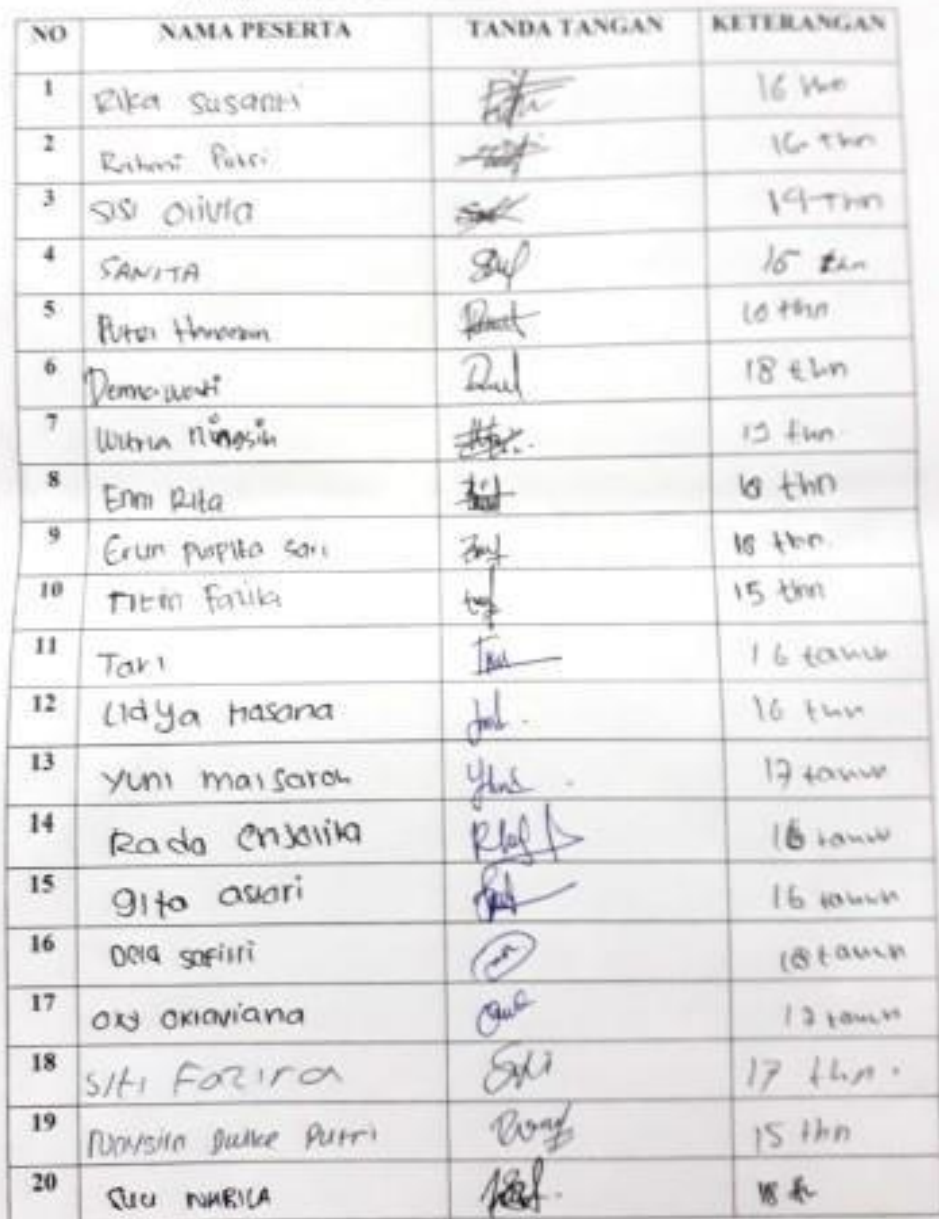 NO NAMA PESERTA TANDA TANGAN KETERANGAN
1 Rika Susanti 16 thn
2 Rahmi Putri 16 thn
3 SISI OliVia 19 Thn
4 SANITA 15 thn
5 Putri thn
6 Dermawati 18 thn
7 Witria Ningsih thn
8 Enni Rita 18 thn
9 Erun puspita sari 18 thn
10 Titin Farika 15 thn
11 Tari 16 tahun
12 Lidya Hasana 16 thn
13 Yuni maisarah 17 tahun
14 Rada Enjolika 18 tahun
15 gita asuari 16 tahun
16 Dela safitri 18 tahun
17 oxy oktaviana tahun
18 Siti Fazira 17 thn.
19 Putri 15 thn
20 18